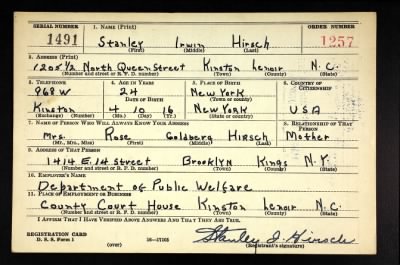 SERIAL NUMBER 1. NAME (Print) ORDER NUMBER
1491 Stanley Irwin Hirsch 1257
(First) (Middle) (Last)
2. ADDRESS (Print)
1205 1/2 North Queen Street Kinston Lenoir N.C.
(Number and street or R. F. D. number) (Town) (County) (State)
3. TELEPHONE 4. AGE IN YEARS 5. PLACE OF BIRTH 6. COUNTRY OF CITIZENSHIP
968W 24 New York
DATE OF BIRTH (Town or county)
Kinston 4 10 16 New York USA
(Exchange) (Number) (Mo.) (Day) (Yr.) (State or country)
7. NAME OF PERSON WHO WILL ALWAYS KNOW YOUR ADDRESS 8. RELATIONSHIP OF THAT PERSON
Mrs. Rose Goldberg Hirsch Mother
(Mr., Mrs., Miss) (First) (Middle) (Last)
9. ADDRESS OF THAT PERSON
1414 E. 14 Street Brooklyn Kings N.Y.
(Number and street or R. F. D. number) (Town) (County) (State)
10. EMPLOYER'S NAME
Department of Public Welfare
11. PLACE OF EMPLOYMENT OR BUSINESS
County Court House Kinston Lenoir N.C.
(Number and street or R. F. D. number) (Town) (County) (State)
I AFFIRM THAT I HAVE VERIFIED ABOVE ANSWERS AND THAT THEY ARE TRUE.
REGISTRATION CARD
D. S. S. Form 1 (over) 16—17105 Stanley I. Hirsch
(Registrant's signature)